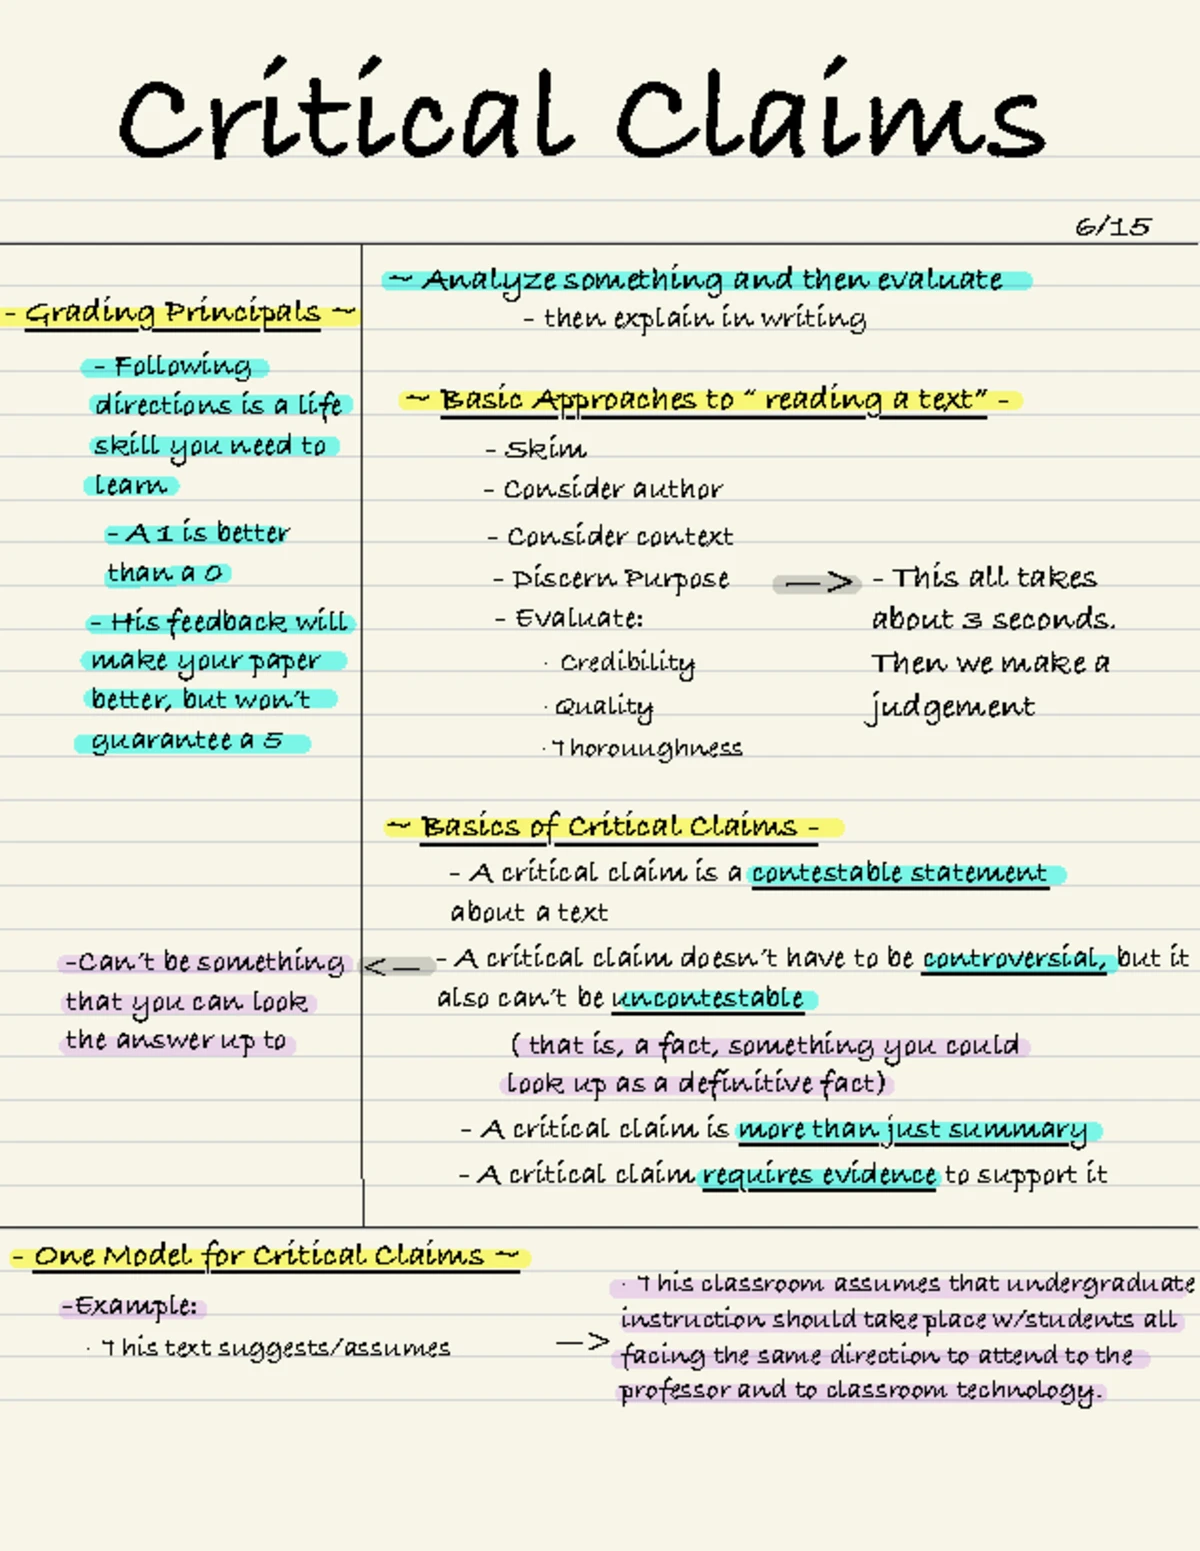 Critical Claims
6/15
- Grading Principals ~
- Following
directions is a life
skill you need to
learn
- A 1 is better
than a 0
- His feedback will
make your paper
better, but won't
guarantee a 5
~ Analyze something and then evaluate
- then explain in writing
~ Basic Approaches to " reading a text" -
- Skim
- Consider author
- Consider context
- Discern Purpose
- Evaluate:
· Credibility
· Quality
· Thorouughness
—> - This all takes
about 3 seconds.
Then we make a
judgement
~ Basics of Critical Claims -
- A critical claim is a contestable statement
about a text
- A critical claim doesn't have to be controversial, but it
also can't be uncontestable
( that is, a fact, something you could
look up as a definitive fact)
<—
-Can't be something
that you can look
the answer up to
- A critical claim is more than just summary
- A critical claim requires evidence to support it
- One Model for Critical Claims ~
-Example:
· This text suggests/assumes
—> · This classroom assumes that undergraduate
instruction should take place w/students all
facing the same direction to attend to the
professor and to classroom technology.